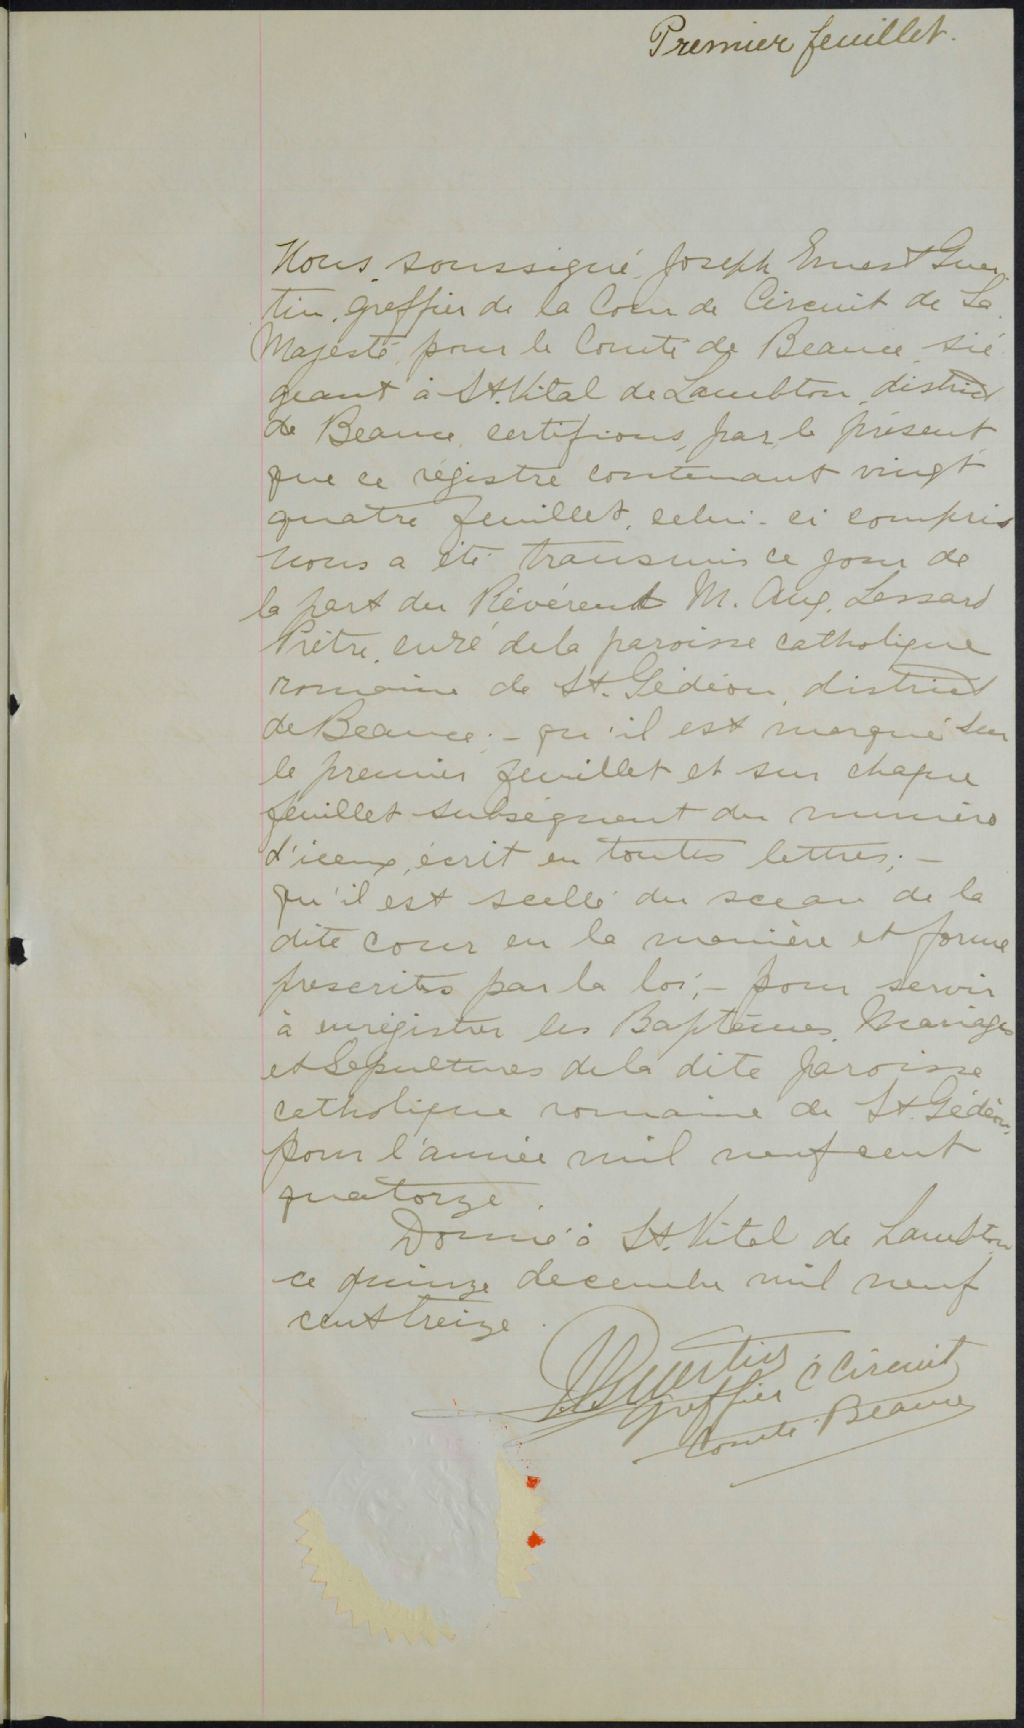 Premier feuillet.
Nous, soussigné, Joseph Ernest Guer-
tin, greffier de la Cour de Circuit de Sa
Majesté, pour le Comté de Beauce, sié
geant à St. Vital de Lambton, district
de Beauce, certifions, par le présent
que ce régistre contenant vingt
quatre feuillet, celui-ci compris
nous a été transmis ce jour de
la part du Révérend M. Aug. Lessard
Prêtre, curé de la paroisse catholique
romaine de St. Gédéon, district
de Beauce; - qu'il est marqué sur
le premier feuillet et sur chaque
feuillet subséquent du numéro
d'iceux, écrit en toutes lettres; -
qu'il est scellé du sceau de la
dite cour en la manière et forme
prescrites par la loi; - pour servir
à enrégistrer les Baptêmes, Mariages
et Sépultures de la dite paroisse
catholique romaine de St. Gédéon,
pour l'année mil neuf cent
quatorze.
Donné à St. Vital de Lambton,
ce quinze decembre mil neuf
cent treize.
Guertin
Greffier C Circuit
Comté Beauce